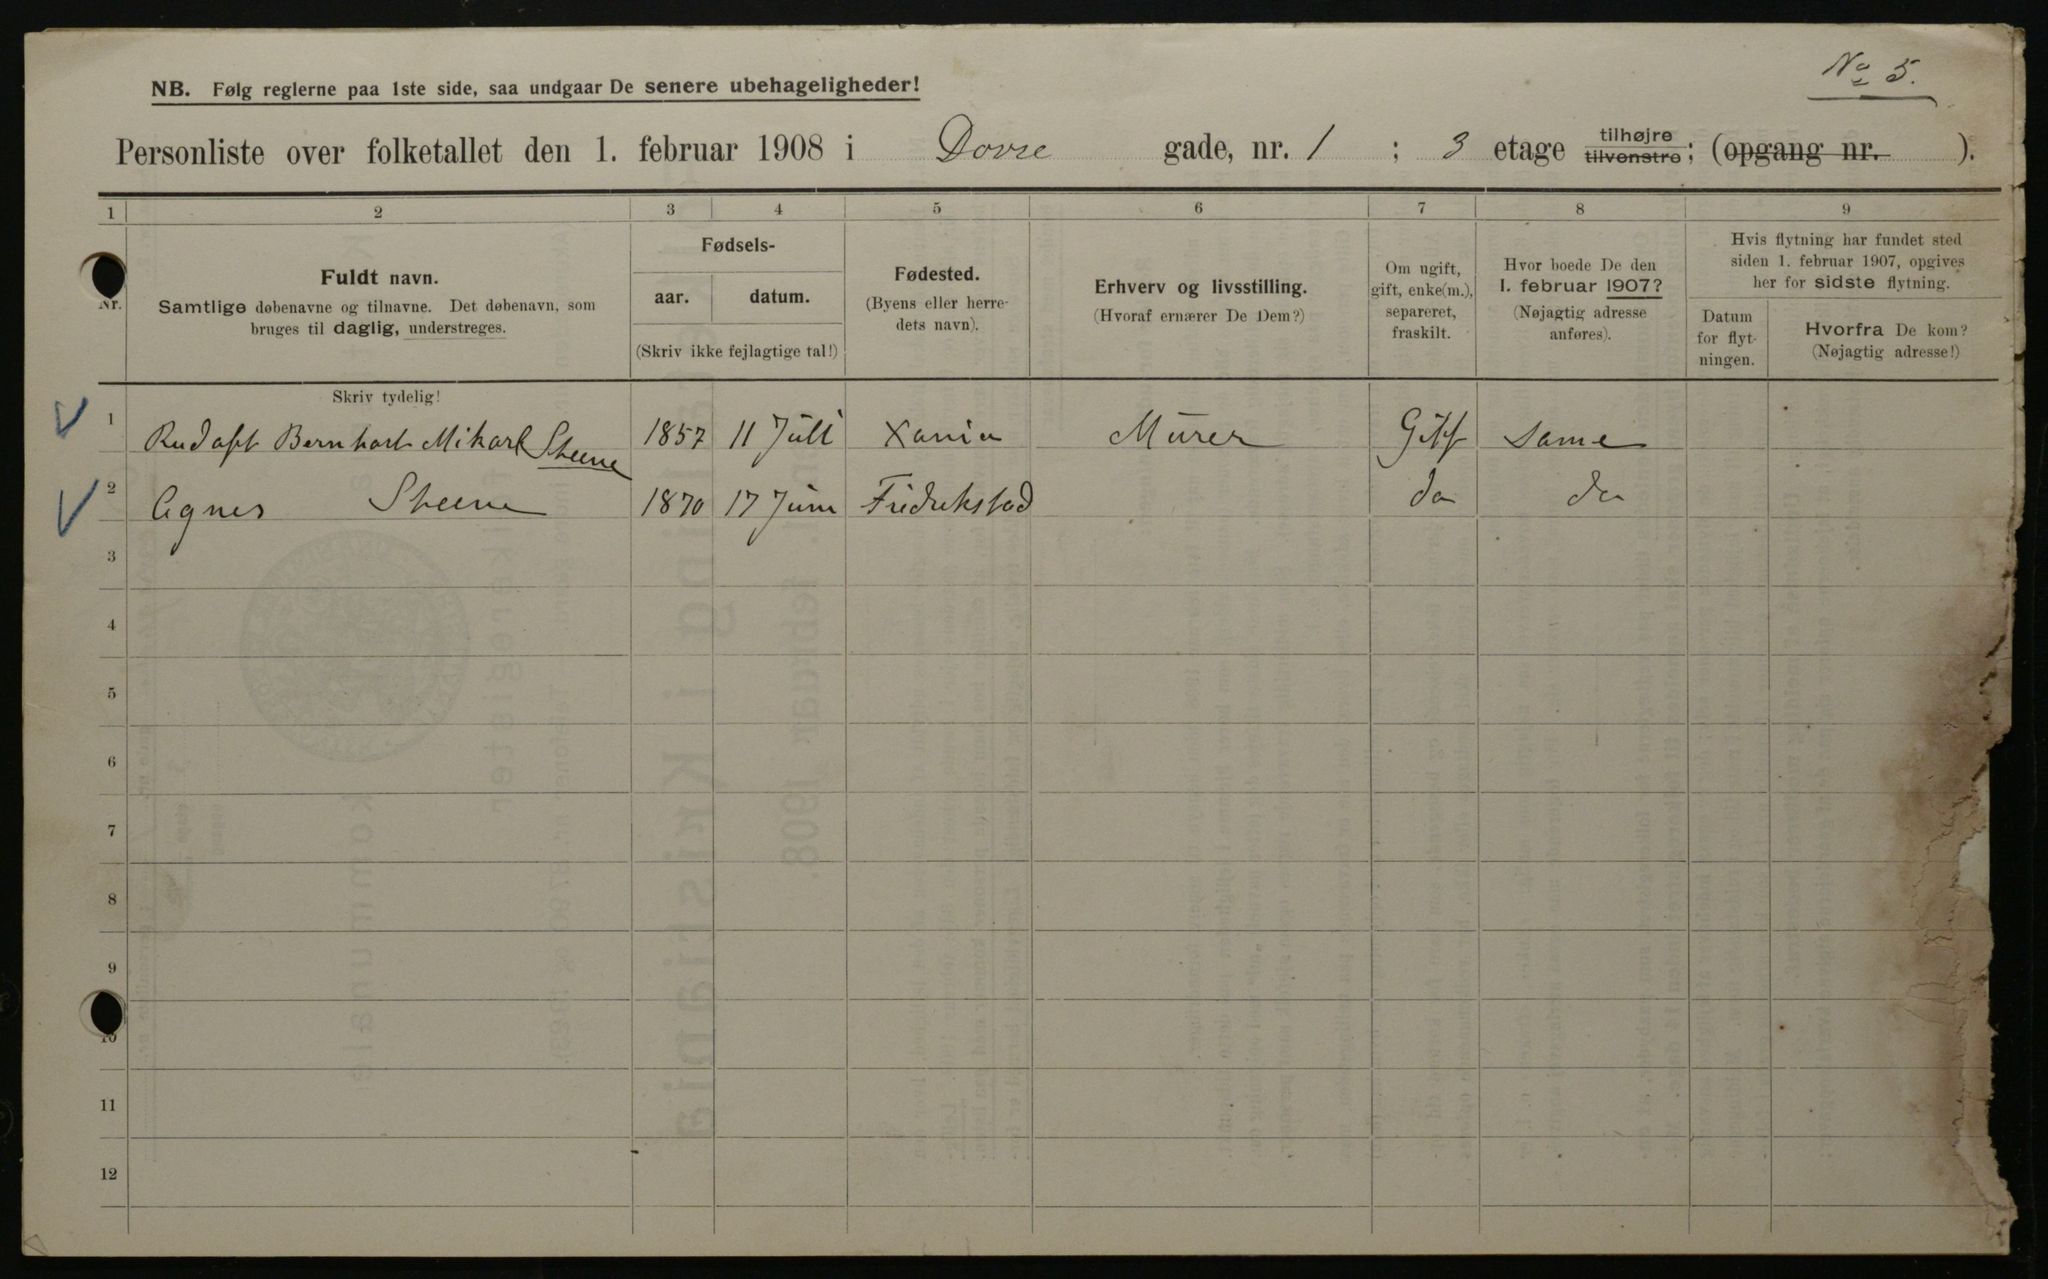 No 5.
NB. Følg reglerne paa 1ste side, saa undgaar De senere ubehageligheder!
Personliste over folketallet den 1. februar 1908 i Dovre gade, nr. 1 ; 3 etage tilhøjre tilvenstre; (opgang nr. ).
1 2 3 4 5 6 7 8 9
Nr.
Fuldt navn.
Samtlige døbenavne og tilnavne. Det døbenavn, som
bruges til daglig, understreges.
Fødsels-
aar. datum.
(Skriv ikke fejlagtige tal!)
Fødested.
(Byens eller herre-
dets navn).
Erhverv og livsstilling.
(Hvoraf ernærer De Dem?)
Om ugift,
gift, enke(m.),
separeret,
fraskilt.
Hvor boede De den
1. februar 1907?
(Nøjagtig adresse
anføres).
Hvis flytning har fundet sted
siden 1. februar 1907, opgives
her for sidste flytning.
Datum
for flyt-
ningen.
Hvorfra De kom?
(Nøjagtig adresse!)
Skriv tydelig!
1 Rudoft Bernhart Mikarl Steene 1857 11 Juli Xania Murer Gift Same
2 Agnes Steene 1870 17 Juni Fredrikstad do do
3
4
5
6
7
8
9
10
11
12